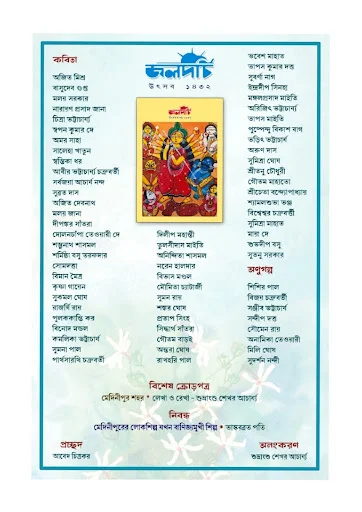 জলদর্চি
উৎসব ১৪৩২
কবিতা
অজিত মিশ্র
বাসুদেব গুপ্ত
মলয় সরকার
নারায়ণ প্রসাদ জানা
চিত্রা ভট্টাচার্য্য
স্বপন কুমার দে
অমর সাহা
সালেহা খাতুন
স্বস্তিকা ধর
আবীর ভট্টাচার্য্য চক্রবর্তী
সর্বজয়া আচার্য নন্দ
সুব্রত দাস
অজিত দেবনাথ
মলয় জানা
দীপঙ্কর সাঁতরা
দোলনচাঁপা তেওয়ারী দে
শম্ভুনাথ শাসমল
শর্মিষ্ঠা বসু তরফদার
সোমদত্তা
বিমান মৈত্র
কৃষ্ণা গায়েন
সুকমল ঘোষ
রাজর্ষি রায়
পুলককান্তি কর
বিনোদ মন্ডল
কমলিকা ভট্টাচার্য
সুমনা পাল
পার্থসারথি চক্রবর্তী
দিলীপ মহান্তী
তুলসীদাস মাইতি
অনিন্দিতা শাসমল
নরেন হালদার
বিভাস মন্ডল
মৌমিতা চ্যাটার্জী
সুমন রায়
শঙ্কর ঘোষ
প্রতাপ সিংহ
সিদ্ধার্থ সাঁতরা
গৌতম বাড়ই
অন্তরা ঘোষ
রাখহরি পাল
ভবেশ মাহাত
তাপস কুমার দত্ত
সুবর্ণা নাগ
ইন্দ্রদীপ সিনহা
মঙ্গলপ্রসাদ মাইতি
অরিজিৎ ভট্টাচার্য্য
তাপস মাইতি
পুষ্পেন্দু বিকাশ বাগ
তড়িৎ ভট্টাচার্য
অরুণ দাস
সুমিত্রা ঘোষ
শ্রীতনু চৌধুরী
গৌতম মাহাতো
শ্রীচেতা বন্দ্যোপাধ্যায়
শ্যামলশুভ্র ভঞ্জ
বিশ্বেশ্বর চক্রবর্তী
সুমিত্রা মাহাত
মায়া দে
শুভদীপ বসু
সুতনু সরকার
অণুগল্প
শিশির পাল
বিজয় চক্রবর্তী
সঞ্জীব ভট্টাচার্য
সন্দীপ দত্ত
সৌমেন রায়
অনামিকা তেওয়ারী
মিলি ঘোষ
সুদর্শন নন্দী
বিশেষ ক্রোড়পত্র
মেদিনীপুর শহর * লেখা ও রেখা - শুভ্রাংশু শেখর আচার্য্য
নিবন্ধ
মেদিনীপুরের লোকশিল্প যখন বাণিজ্যমুখী শিল্প * ভাস্করব্রত পতি
প্রচ্ছেদ
আবেদ চিত্রকর
অলংকরণ
শুভ্রাংশু শেখর আচার্য্য